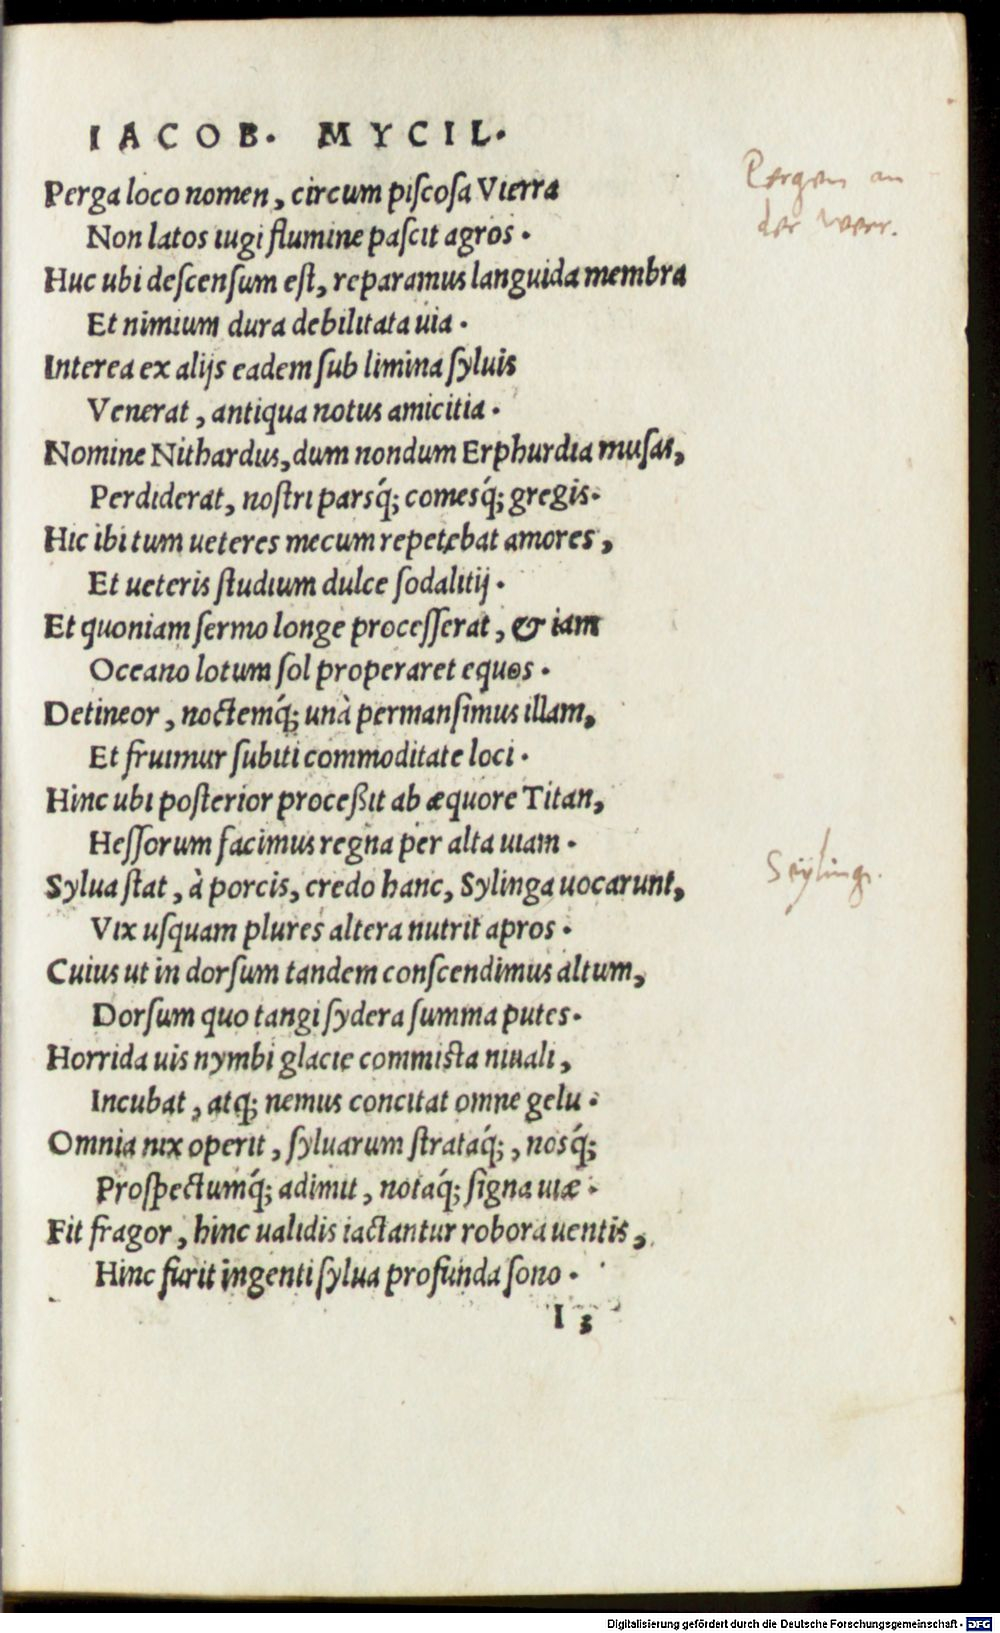 IACOB. MYCIL.
Perga loco nomen, circum piſcoſa Vierra
Non latos iugi flumine paſcit agros.
Huc ubi deſcenſum eſt, reparamus languida membra
Et nimium dura debilitata uia.
Interea ex alijs eadem ſub limina ſyluis
Venerat, antiqua notus amicitia.
Nomine Nithardus, dum nondum Erphurdia muſas,
Perdiderat, noſtri parsq́; comesq́; gregis.
Hic ibi tum ueteres mecum repetebat amores,
Et ueteris ſtudium dulce ſodalitij.
Et quoniam ſermo longe proceſſerat, & iam
Oceano lotum ſol properaret equos.
Detineor, noctemq́; unà permanſimus illam,
Et fruimur ſubiti commoditate loci.
Hinc ubi poſterior proceßit ab æquore Titan,
Heſſorum facimus regna per alta uiam.
Sylua ſtat, à porcis, credo hanc, Sylinga uocarunt,
Vix uſquam plures altera nutrit apros.
Cuius ut in dorſum tandem conſcendimus altum,
Dorſum quo tangi ſydera ſumma putes.
Horrida uis nymbi glacie commiſta niuali,
Incubat, atq; nemus concitat omne gelu.
Omnia nix operit, ſyluarum ſtrataq́;, nosq́;
Proſpectumq́; adimit, notaq́; ſigna uiæ.
Fit fragor, hinc ualidis iactantur robora uentis,
Hinc furit ingenti ſylua profunda ſono.
I 3
an
der Werr.
Digitalisierung gefördert durch die Deutsche Forschungsgemeinschaft - DFG